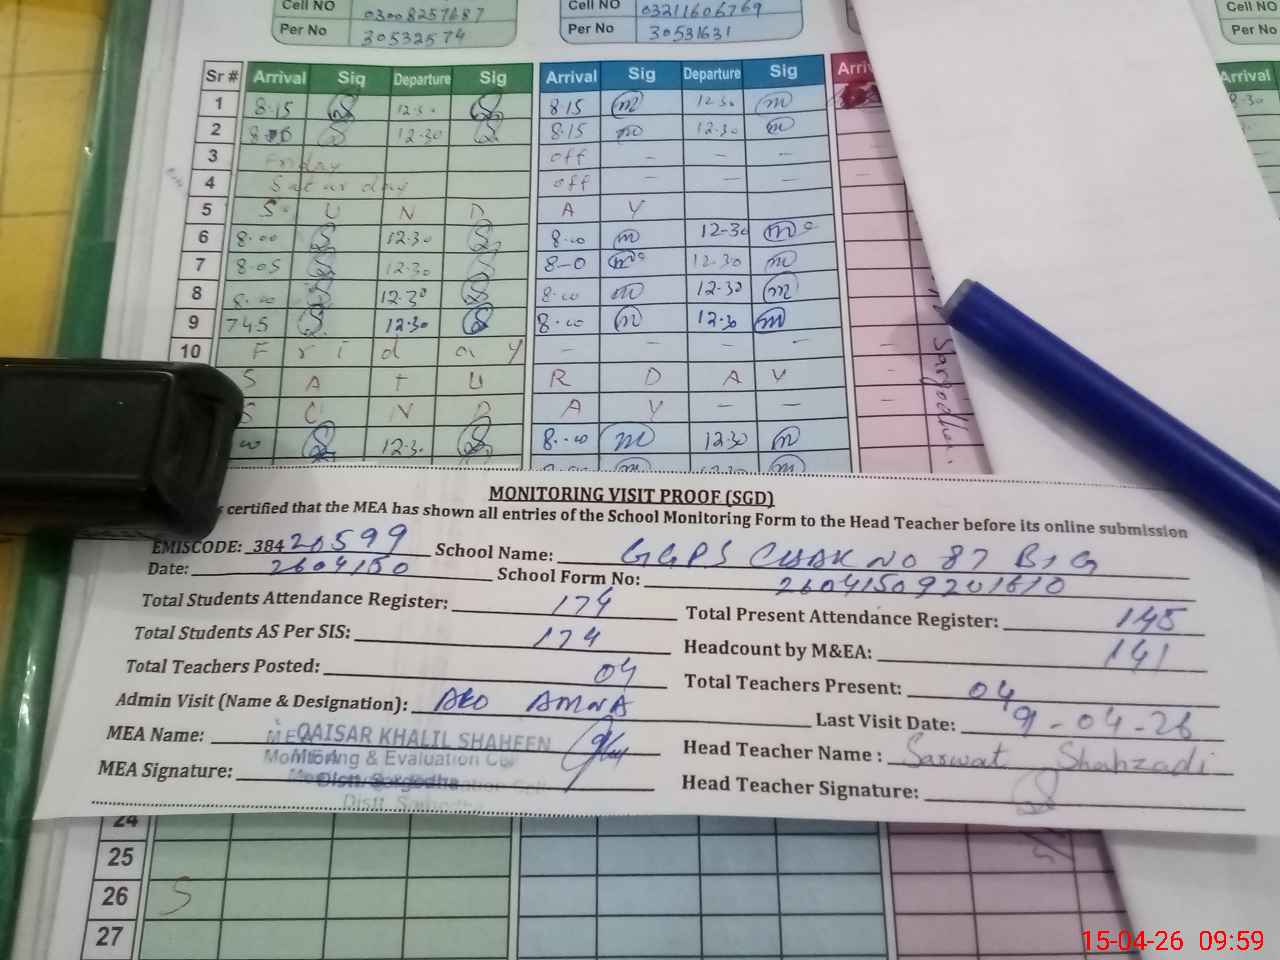 Cell NO 03008257687 Cell NO 03211606769 Cell NO
Per No 30532574 Per No 30531631 Per No
Sr # Arrival Sig Departure Sig Arrival Sig Departure Sig Arri Arrival
1 8.15 12.30 8.15 m 12.30 m 8.30
2 12.30 8.15 m 12.30 m
3 Friday off - - -
4 Saturday off - - -
5 S U N D A Y
6 8.00 12.30 8.00 m 12-30 m
7 8.05 12.30 8-0 m 12.30 m
8 8.00 12.30 8.00 m 12.30 m
9 745 12.30 8.00 m 12.30 m
10 F r i d a y - - - -
S A T U R D A Y
S U N D A Y - -
00 12.30 8.00 m 12.30 m
Sargodha.
MONITORING VISIT PROOF (SGD)
s certified that the MEA has shown all entries of the School Monitoring Form to the Head Teacher before its online submission
EMISCODE: 38420599 School Name: GGPS CHAK NO 87
Date: 2604150 School Form No: 26041509201610
Total Students Attendance Register: 174 Total Present Attendance Register: 145
Total Students AS Per SIS: 174 Headcount by M&EA: 141
Total Teachers Posted: 04 Total Teachers Present: 04
Admin Visit (Name & Designation): AEO AMNA Last Visit Date: 9-04-26
MEA Name: QAISAR KHALIL SHAHEEN Head Teacher Name : Sarwat Shahzadi
Monitoring & Evaluation
MEA Signature: Distt. Sargodha Head Teacher Signature:
24
25
26 S
27
15-04-26 09:59